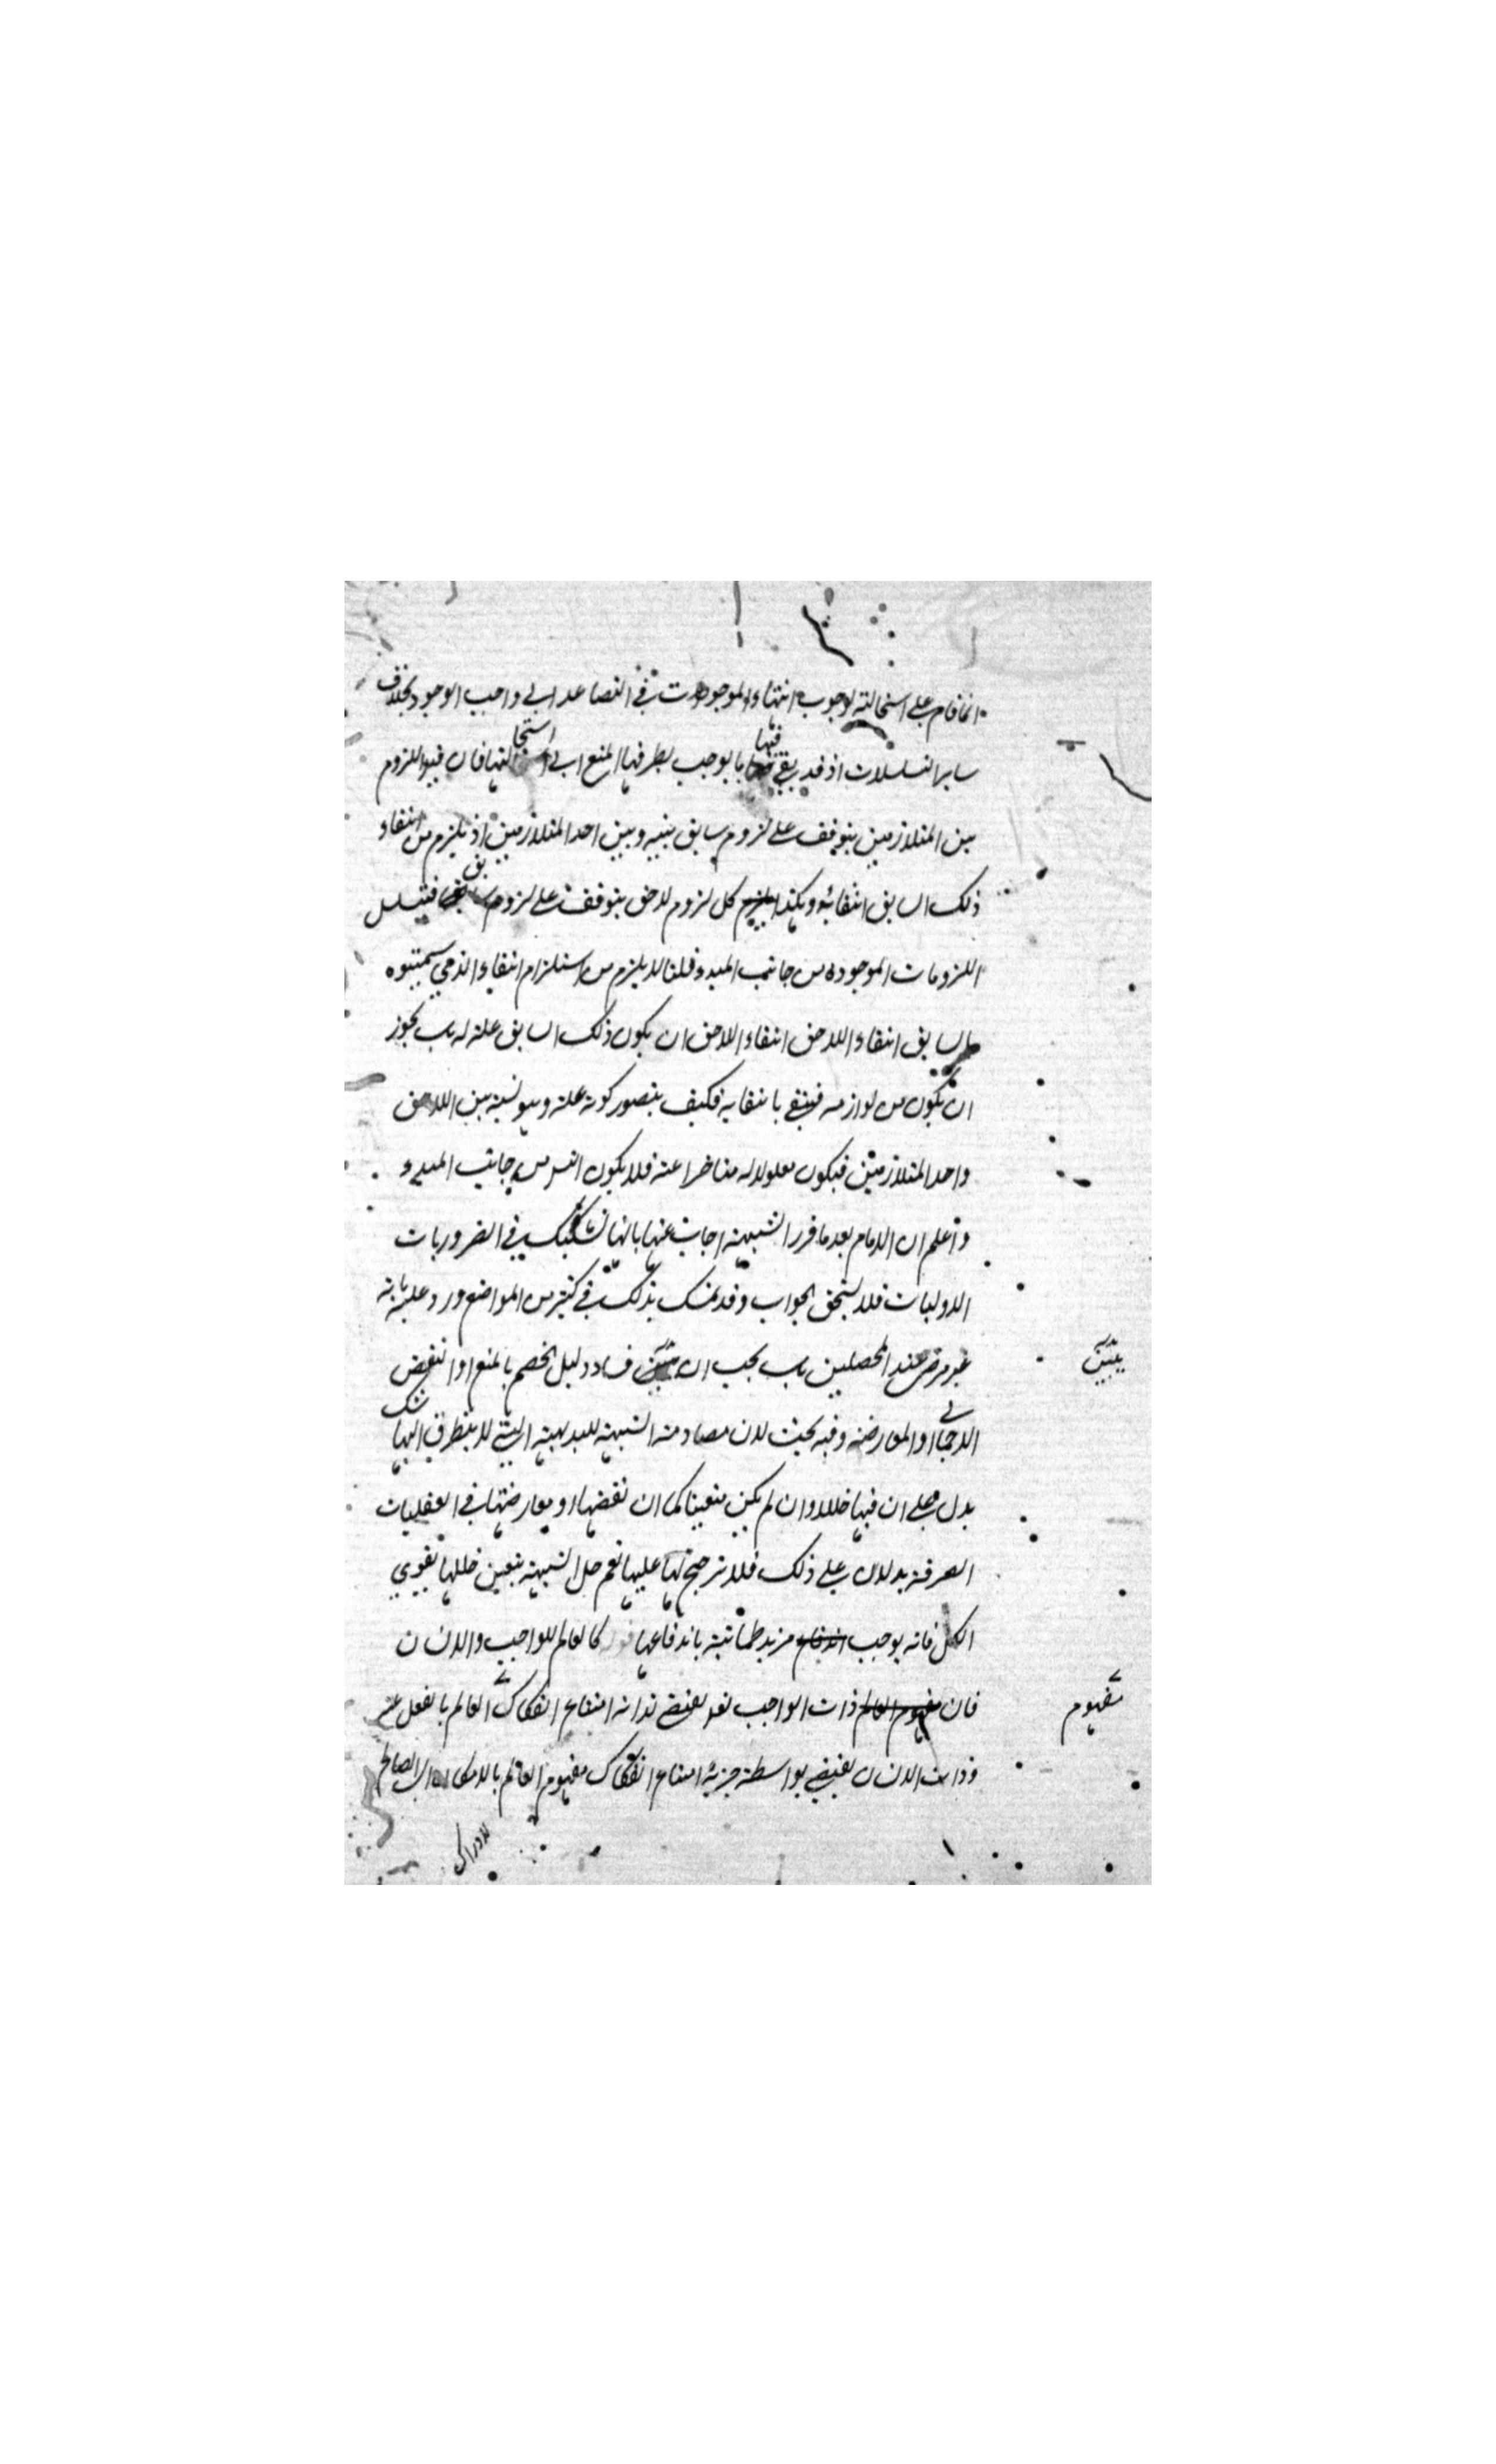 انما قام على استحالته لوجوب انتهاء الموجودات في التصاعد الى واجب الوجود بخلاف
ساير التسلسلات اذ قد بقي فيها ما يوجب تطرقها المنع الى استحالتها فان قيل اللزوم
بين المتلازمين يتوقف على لزوم سابق بينه وبين احد المتلازمين اذ يلزم من انتفاء
ذلك السابق انتفائه وهكذا كل لزوم لاحق يتوقف على لزوم سابق فيتسلسل
اللزومات الموجودة من جانب المبدء قلنا لا يلزم من استلزام انتفاء الذي سميتموه
بالسابق انتفاء اللاحق انتفاء اللاحق ان يكون ذلك السابق علة له بل يجوز
ان يكون من لوازمه فينتفي بانتفايه فكيف يتصور كونه علة وهو نسبة بين اللاحق
واحد المتلازمين فيكون معلولا له متاخرا عنه فلا يكون التس من جانب المبدء
واعلم ان الامام بعد ما قرر الشبهة اجاب عنها بانها تشكيك في الضروريات
الاوليات فلا يستحق الجواب وقد تمسك بذلك في كثير من المواضع ورد عليه بانه
غير مرضي عند المحصلين بل يجب ان يبين فساد دليل الخصم بالمنع او النقض
يبين
الاجمالي او المعارضة وفيه بحث لان مصادمة الشبهة للبديهية التي لا يتطرق اليها شك
يدل على ان فيها خللا وان لم يكن متعينا كما ان نقضها او معارضتها في العقليات
الصرفة يدلان على ذلك فلا ترجيح لها عليها نعم حل الشبهة بتعين خللها تقوي
الكل فانه يوجب مزيد طمانينة باندفاعها كالعالم للواجب والانسان
فان ذات الواجب تعـ يقتضي لذاته امتناع انفكاك العالم بالفعل عنه
مفهوم
وذات الانسان يقتضي بواسطة جزئه امتناع انفكاك مفهوم العالم بالامكان اي الصالح
للادراك